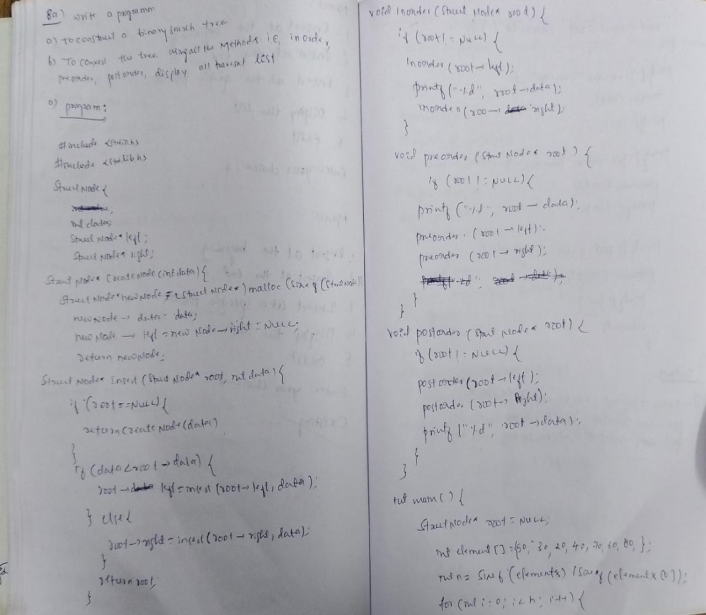 8a) write a programm
a) To construct a binary search tree
b) To the tree using all the methods i.e, in order,
preorder, post order, display all traversal list
a) program:
#include <stdio.h>
#include <stdlib.h>
Struct Node {
int data;
Struct Node* left;
Struct Node* right;
Struct Node* CreateNode (int data) {
Struct Node* newNode = (Struct Node*) malloc (Size of (Struct Node))
newNode → data = data;
new Node → left = new Node → right = NULL;
return newNode;
Struct Node* Insert (Struct Node* root, int data) {
if (root == NULL) {
return Create Node (data)
}
if (data < root → data) {
root → left = insert (root → left, data);
} else {
root → right = insert (root → right, data);
}
return root;
}
void Inorder (Struct Node* root) {
if (root != NULL) {
Inorder (root → left);
printf ("%d", root → data);
inorder (roo → right);
}
void preorder (Struct Node* root) {
if (root != NULL) {
printf ("%d", root → data);
preorder (root → left);
preorder (root → right);
}
}
void postorder (Struct Node* root) {
if (root != NULL) {
post order (root → left);
postorder (root → Right);
printf ("%d", root → data);
}
}
int main () {
Struct Node* root = NULL;
int element [] = {50, 30, 20, 40, 70, 60, 80, };
int n = Size of (elements) / Size of (elements [0]);
for (int i = 0; i < n; i++) {